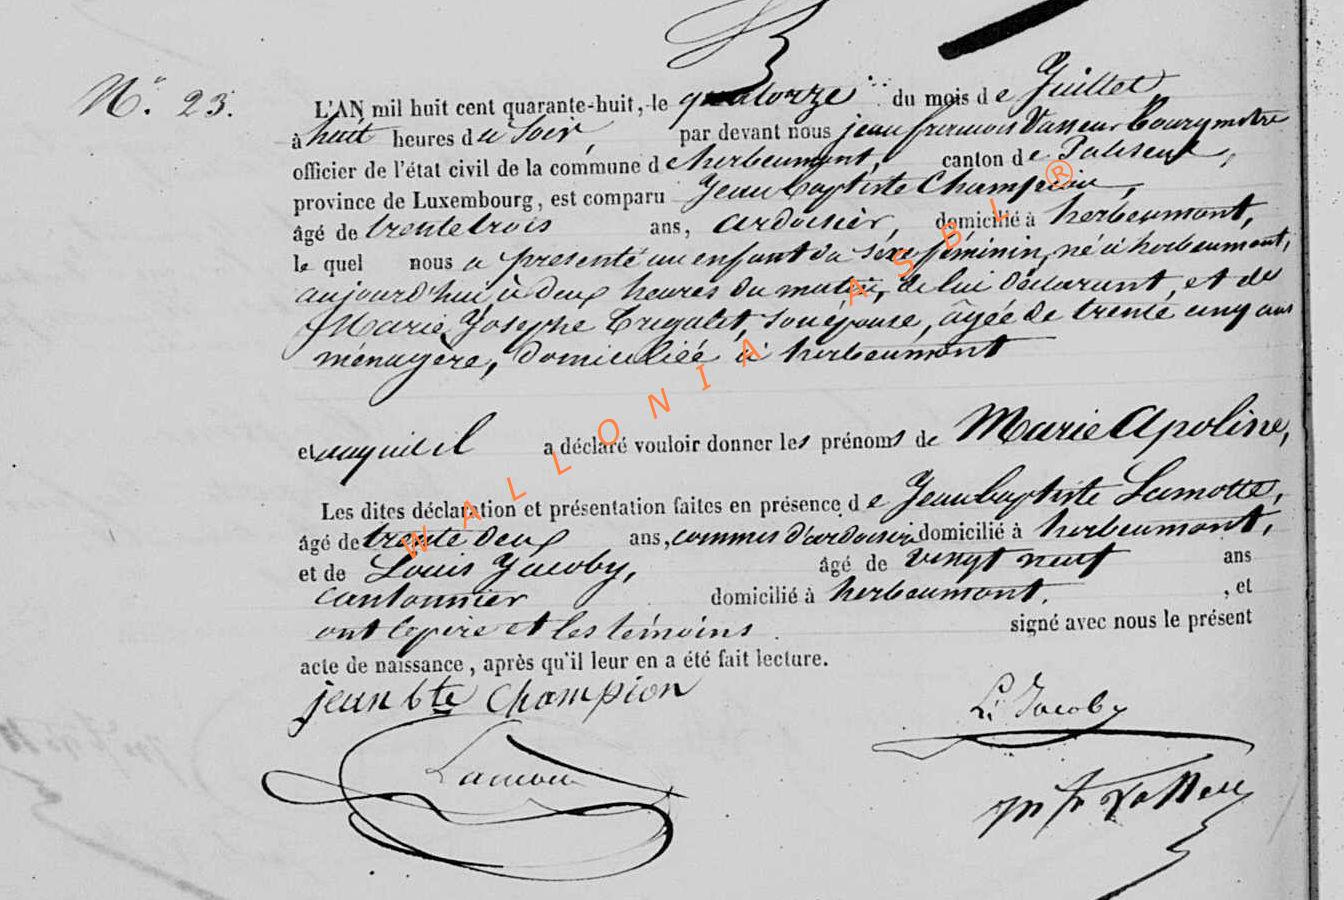 N.° 23.
L'AN mil huit cent quarante-huit, le quatorze du mois de Juillet
à huit heures du soir, par devant nous jean francois Vasseur Bourgmetre
officier de l'état civil de la commune d'herbeumont, canton de Paliseul,
province de Luxembourg, est comparu Jean baptiste Champion,
âgé de trente trois ans, ardoisier, domicilié à herbeumont,
le quel nous a présenté un enfant du séxe féminin, né à herbeumont,
aujourd'hui à deux heures du matin, de lui déclarant, et de
Marie Josephe Trigalet, son épouse, âgée de trente cinq ans
ménagère, domiciliée à herbeumont
et auquel il a déclaré vouloir donner les prénoms de Marie Apoline,
Les dites déclaration et présentation faites en présence de Jean baptiste Lamotte,
âgé de trente deux ans, commis d'ardoisier domicilié à herbeumont,
et de Louis Jacoby, âgé de vingt neuf ans
cantonnier domicilié à herbeumont. , et
ont le pere et les témoins signé avec nous le présent
acte de naissance, après qu'il leur en a été fait lecture.
jean bte Champion
L. Jacoby
Lamotte
WALLONIA ASBL ®